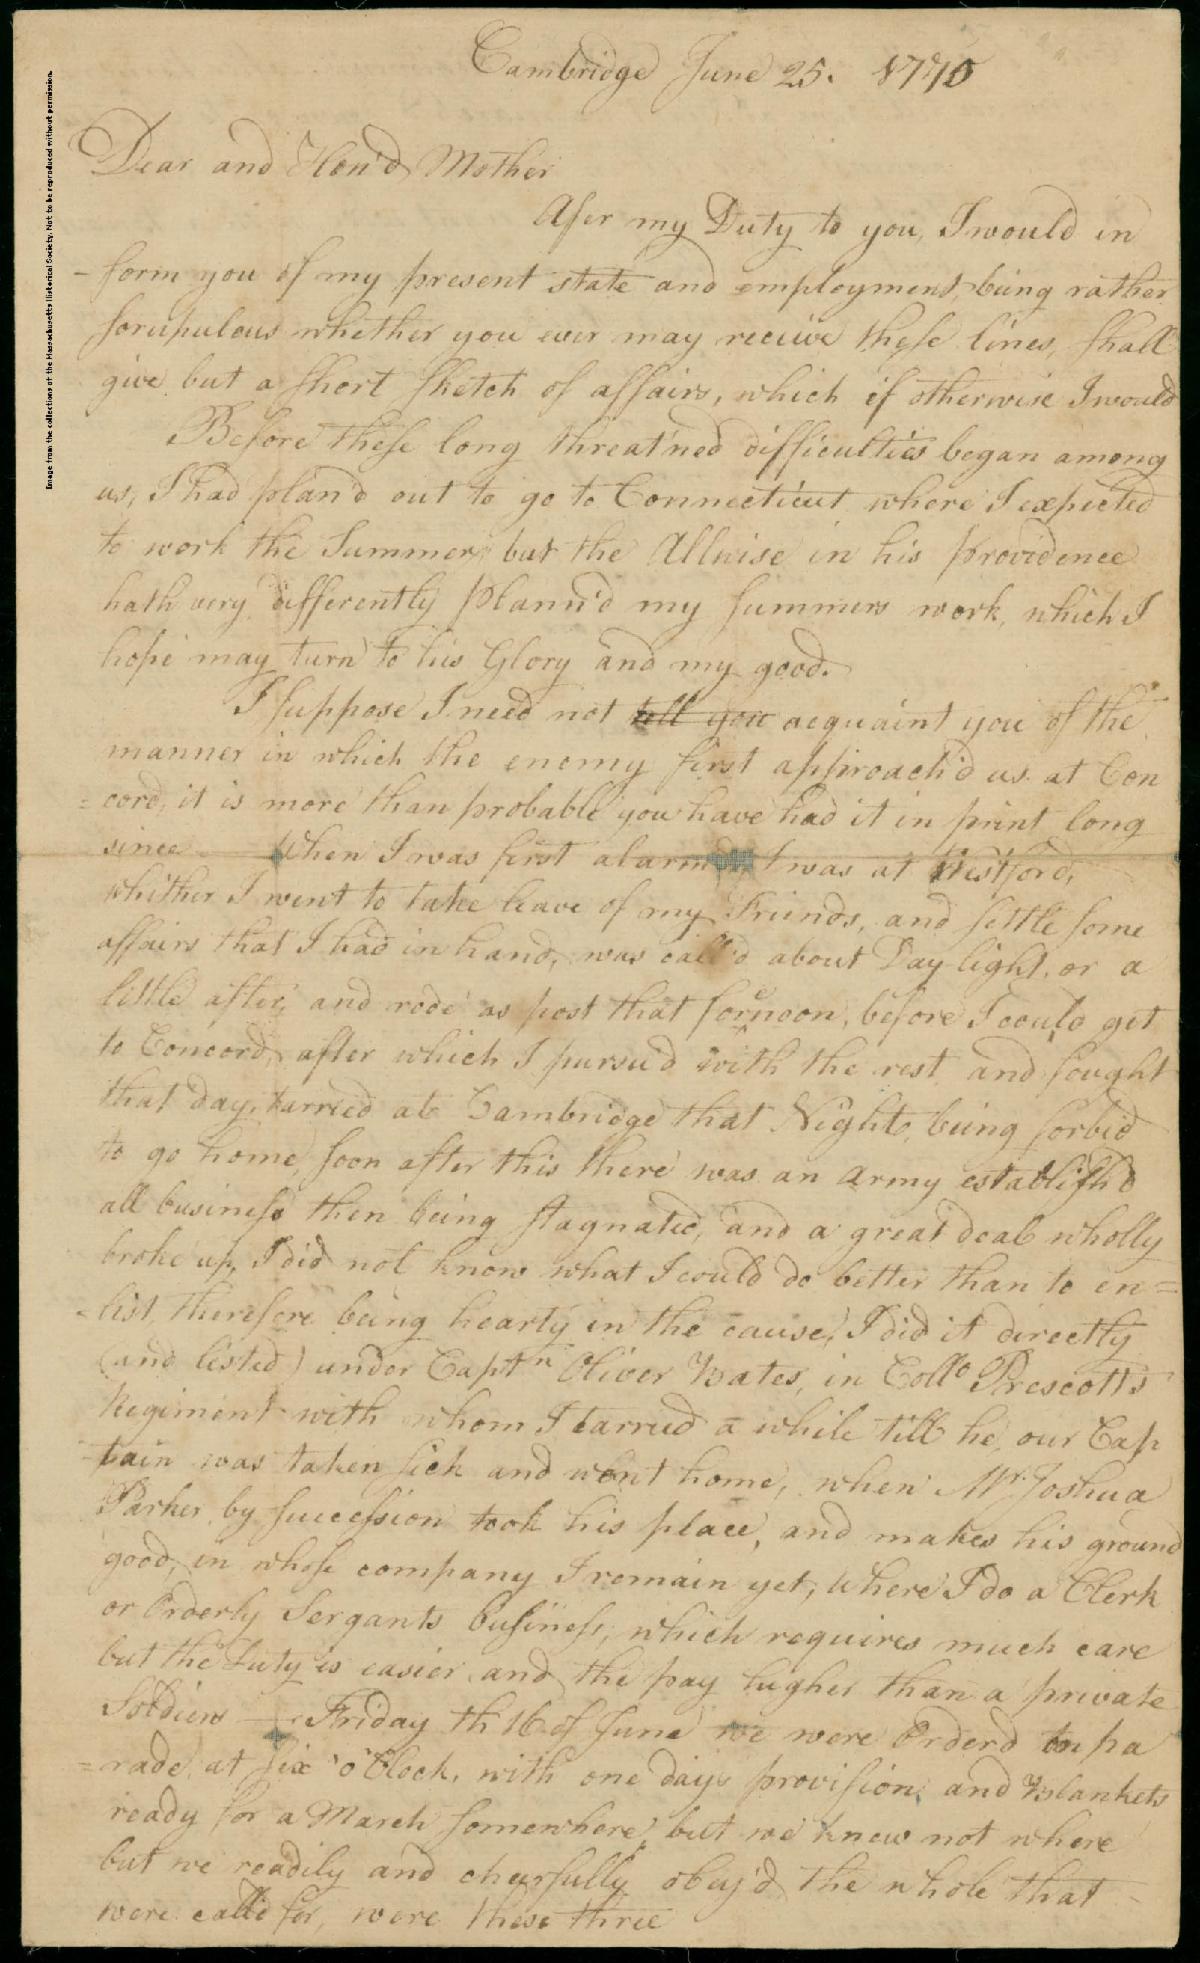 Cambridge June 25. 1775
Dear and Hon'd Mother
Afer my Duty to you, I would in
-form you of my present state and employment, being rather
scrupulous whether you ever may receive these lines, shall
give but a short sketch of affairs, which if otherwise I would
Before these long threat'ned difficulties began among
us, I had plan'd out to go to Connecticut where I expected
to work the Summer, but the Allwise in his providence
hath very differently plann'd my summers work, which I
hope may turn to his Glory and my good.
I suppose I need not tell you acquaint you of the
manner in which the enemy first approach'd us at Con
=cord, it is more than probable you have had it in print long
since — When I was first alarmed I was at Westford,
whither I went to take leave of my Friends, and settle some
affairs that I had in hand, was call'd about Day light, or a
little after, and rode as post that forenoon, before I could get
to Concord, after which I pursu'd with the rest and fought
that day, tarried at Cambridge that Night, being forbid
to go home, soon after this there was an army establish'd
all business then being stagnated, and a great deal wholly
broke up, I did not know what I could do better than to en=
-list, therefore being hearty in the cause, I did it directly
(and listed) under Captn Oliver Bates, in Collo Prescotts
Regiment with whom I tarried a while till he, our Cap
-tain was taken sick and went home, when Mr. Joshua
Parker by succession took his place, and makes his ground
good, in whose company I remain yet, where I do a Clerk
or Orderly Sergants business, which requires much care
but the Duty is easier and the pay higher than a private
Soldiers — Friday th 16 of June we were Orderd to pa
=rade at six 'o' Clock, with one days provision and Blankets
ready for a March somewhere, but we knew not where
but we readily and cheerfully obey'd, the whole that
were call'd for, were these three
Image from the collections of the Massachusetts Historical Society. Not to be reproduced without permission.